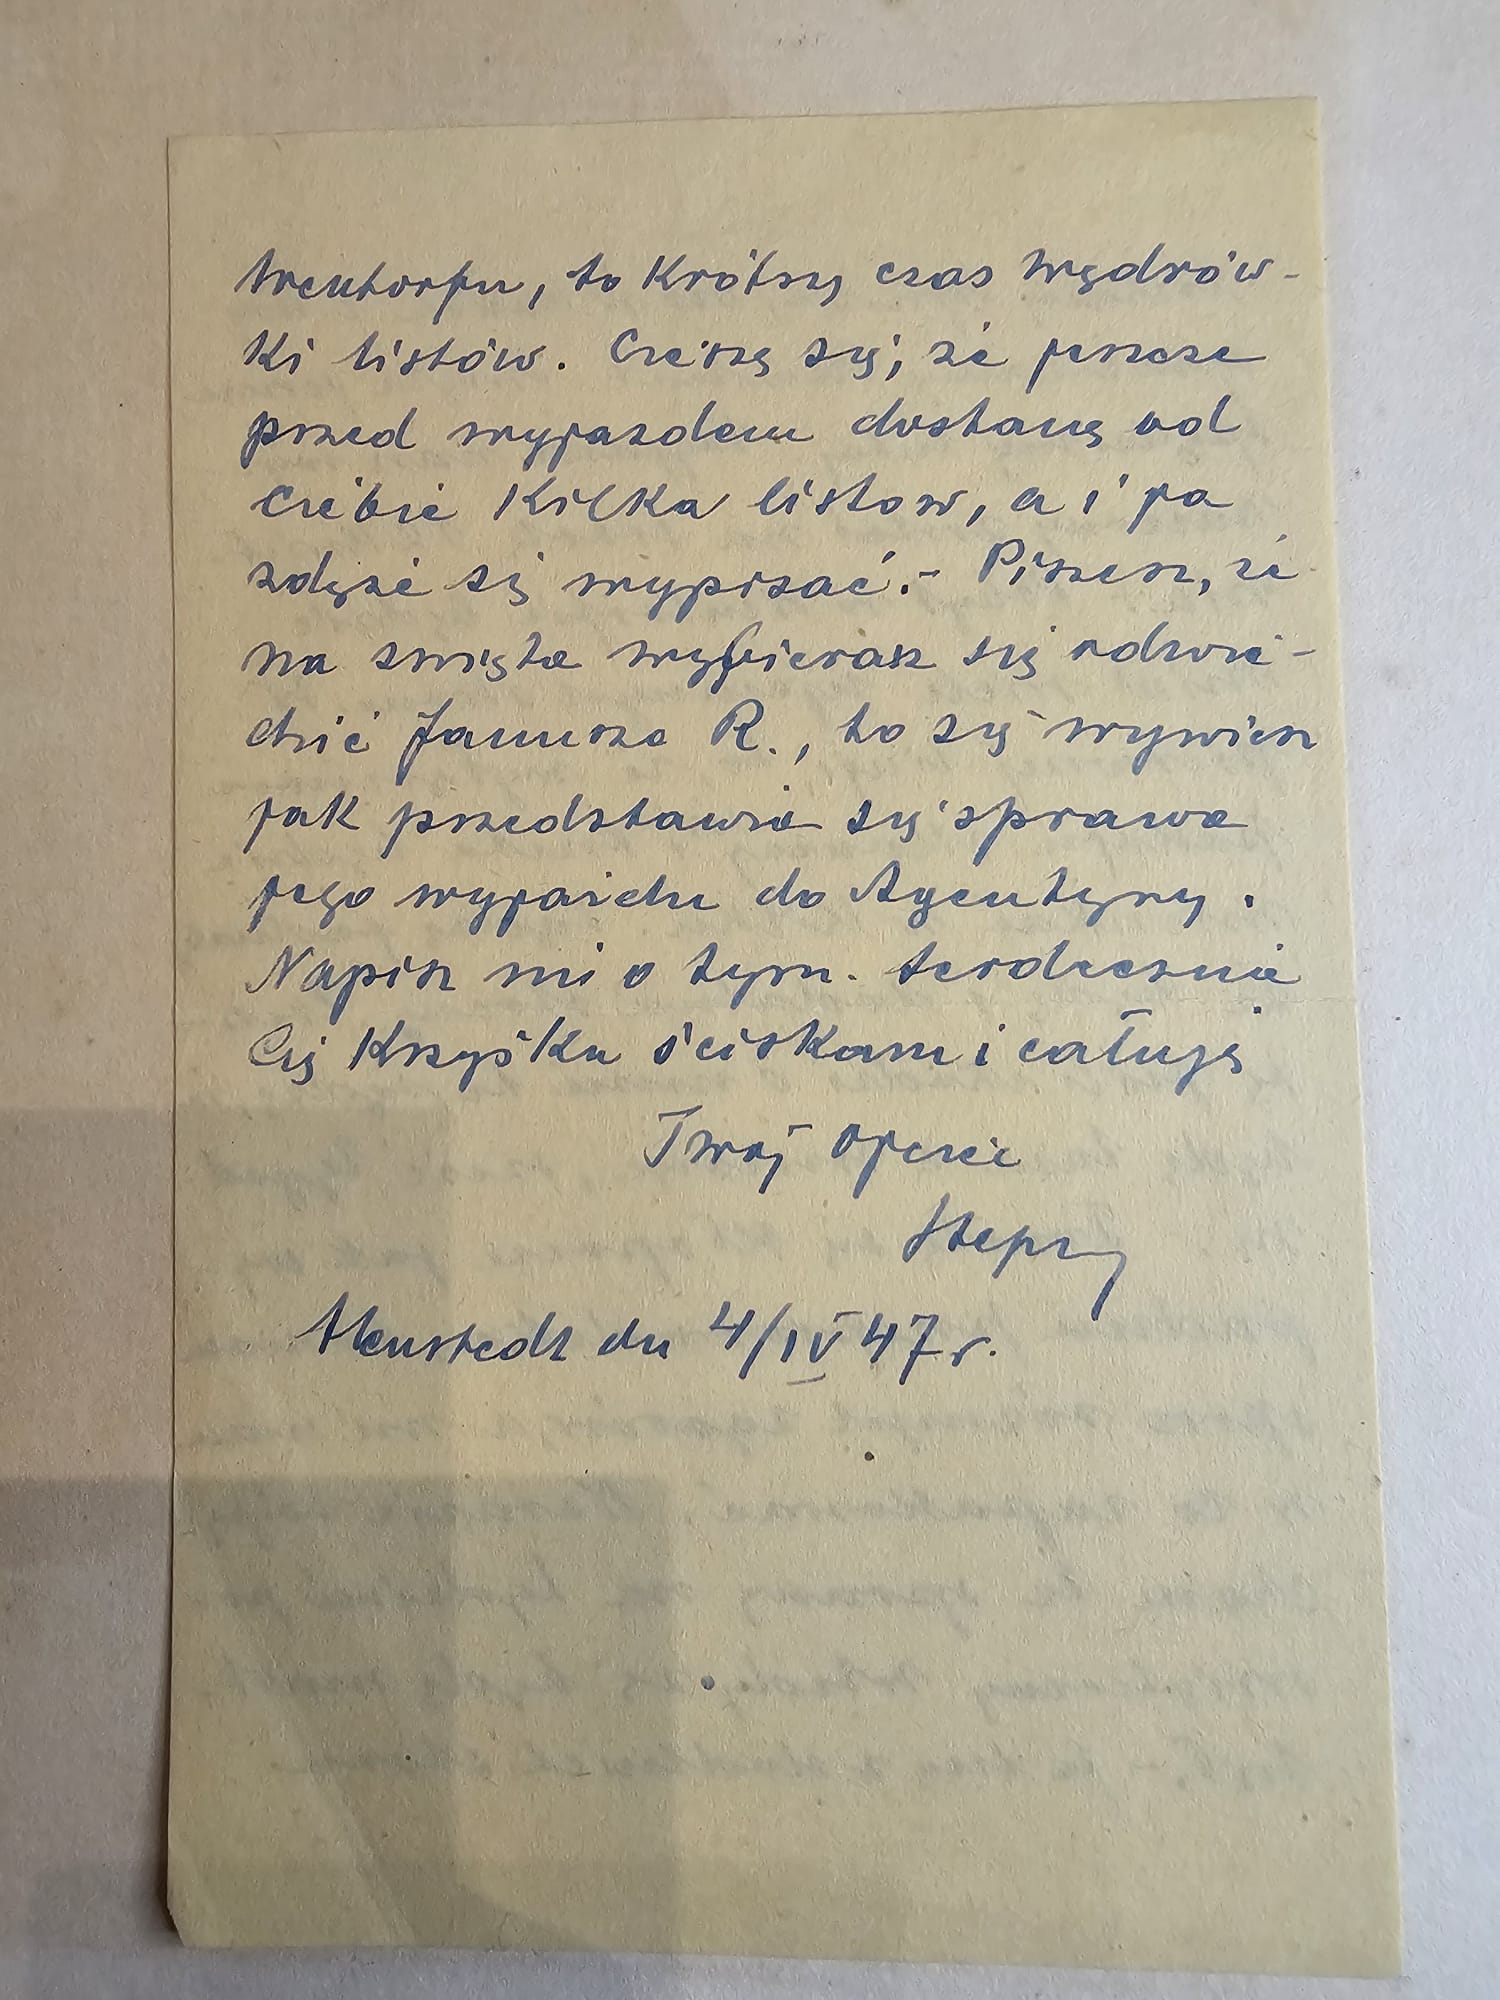 Wentorfu, to krótszy czas wędrów-
ki listów. Cieszę się, że jeszcze
przed wyjazdem dostanę od
Ciebie kilka listow, a i ja
zdąże się wypisać.- Piszesz, że
na święta wybierasz się odwie-
dzić Janusza R., to się wywiesz
jak przedstawia się sprawa
jego wyjazdu do Agentyny.
Napisz mi o tym. Serdecznie
Cię Krzyśku ściskam i całuję
Twój Ojciec
dn 4/IV 47 r.